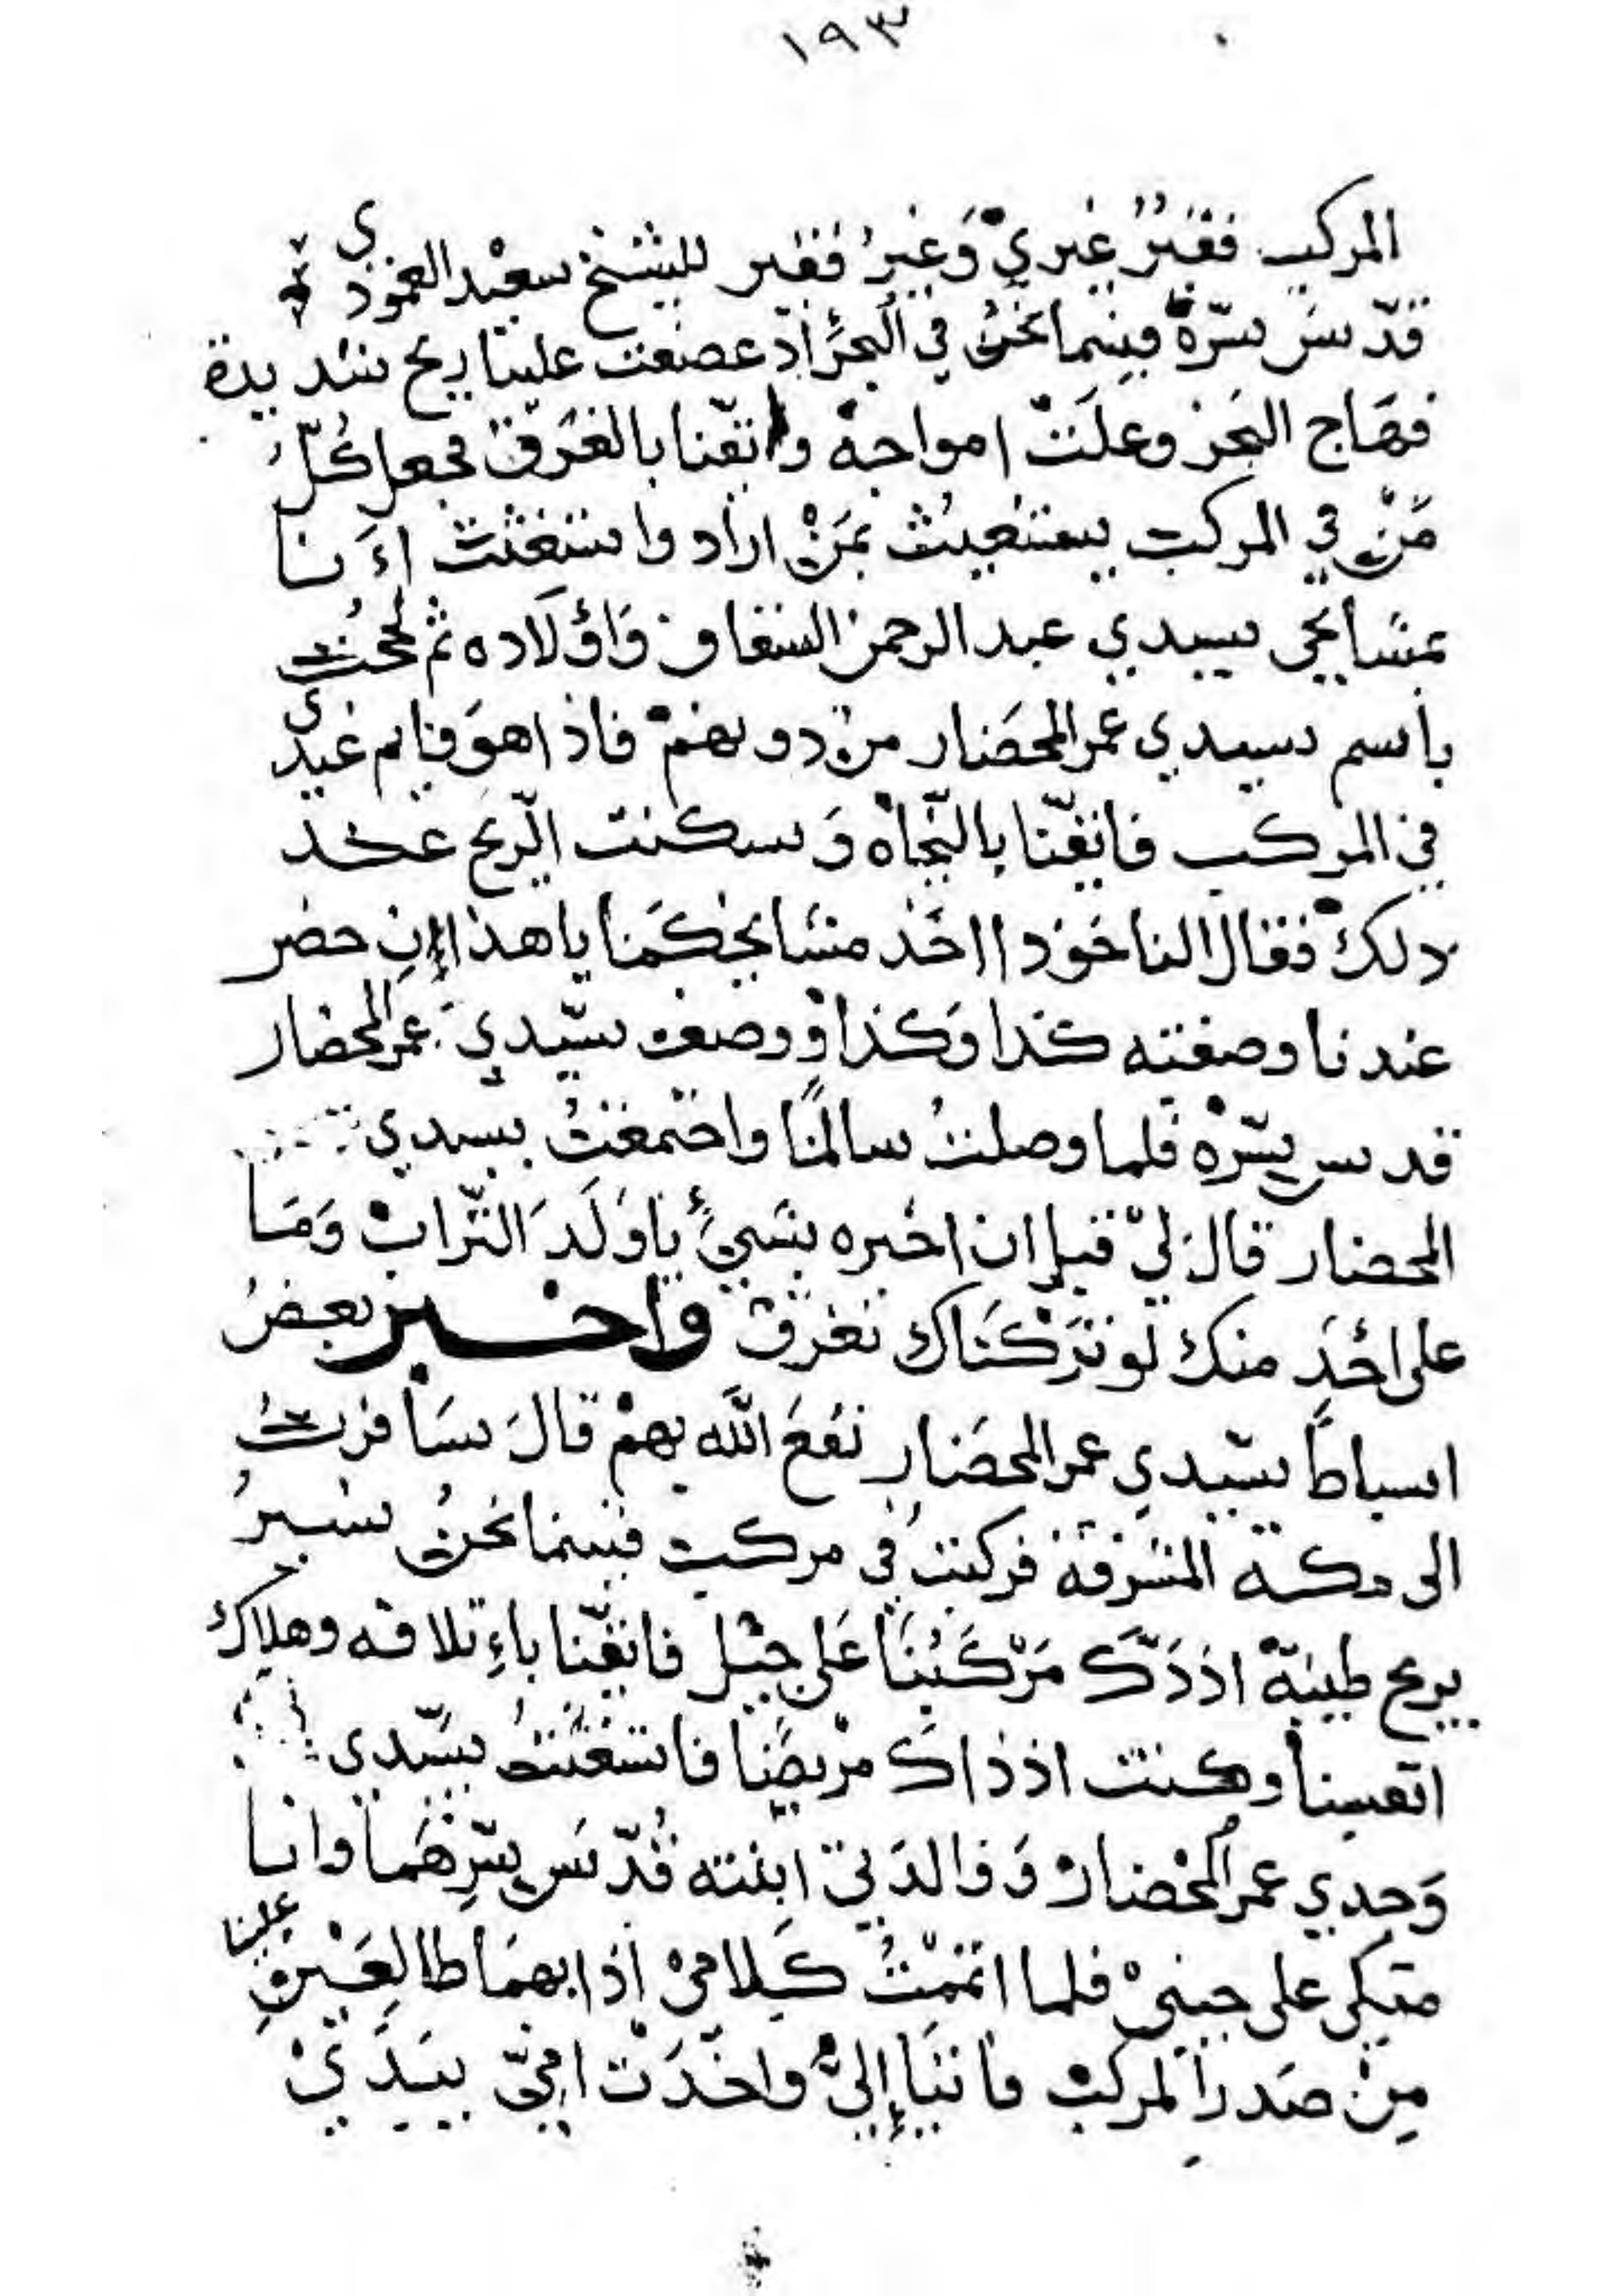 ١٩٣
المركب فقيرٌ غيريْ وَغيرُ فقير للشيخ سعيد العمودي
قدّس سرّهْ فبينما نحنُ في البحرْ اذ عصفت علينا ريح شديدة
فهَاج البحر وعلَتْ امواجهْ وايقنا بالغرَق فجعل كُلُّ
مَنْ في المركب يستغيثُ بمَنْ اراد واستغثت أنا
بمشايخي سيدي عبد الرحمن السقاف وَاوْلَاده ثم لححْتُ
باسم سيدي عمر المحضَار من دونهمْ فاذا هوَ قايم عندي
في المركب فايقنّا بالنّجاهْ وَسكنت الرّيح عند
ذلكْ فقال الناخَوذا احَد مشايخكمَ يا هذا الان حضر
عندنا وصفته كذا وَكذا ووصف سيّدي عمر المحضار
قدس سرّهْ فلما وصلتُ سالمًا واجتمعْتُ بسيدي
المحضار قالَ ليْ قبل ان اخبره بشيءٍ ياوَلَدَ التّرابْ وَمَا
على احَدٍ منك لو تَرَكْنَاك تغرقْ واخبر بعضُ
اسباط سيّدي عمر المحضَار نفعَ اللّه بهمْ قالَ سَافرتُ
الى مكة المشرفة فركبتُ في مركب فبينما نحنُ نسيرُ
بريح طيبةْ اذ دَكّ مَرْكَبُنَا عَلى جبْل فايقنّا باِتلافه وهلاك
انفسنا وكنت اذ ذاك مريضًا فاستغثتُ بسيّدي
وَجدي عمر المحْضارْ وَوالدَتي ابنته قُدّسَ سرّهُما وانا
متكي على جنبيْ فلما اتممْتُ كَلاميْ اذا بهمَا طالعَيْن علينا
مِنْ صَدر المركبْ فأتيَا إليْ واخذَتْ امّيْ بيَدَيْ